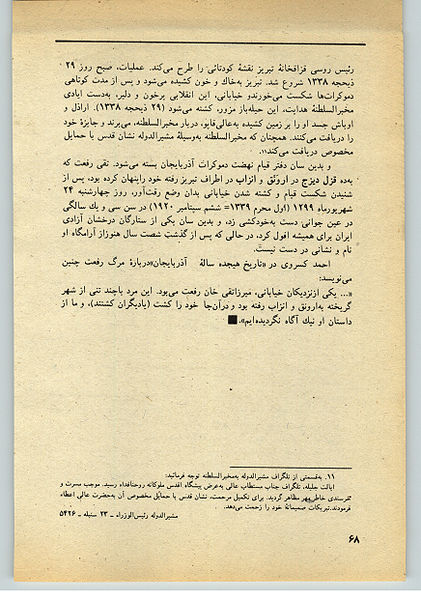 رئیس روسی قزاقخانهٔ تبریز نقشهٔ کودتائی را طرح می‌کند. عملیات، صبح روز ۲۹
ذیحجه ۱۳۳۸ شروع شد. تبریز به‌خاك و خون کشیده می‌شود و پس از مدت کوتاهی
دموکرات‌ها شکست می‌خورندو خیابانی، این انقلابی پرخون و دلیر، به‌دست ایادی
مخبرالسلطنهٔ هدایت، این حیله‌باز مزور، کشته می‌شود (۲۹ ذیحجه ۱۳۳۸). اراذل و
اوباش جسد او را بر زمین کشیده به‌عالی‌قاپو، دربار مخبرالسلطنه، می‌برند و جایزهٔ خود
را دریافت می‌کنند. همچنان که مخبرالسلطنه به‌وسیلهٔ مشیرالدوله نشان قدس با حمایل
مخصوص دریافت می‌کند۱۱.
و بدین سان دفتر قیام نهضت دموکرات آذربایجان بسته می‌شود. تقی رفعت که
به‌ده قزل دیزج در ارونق و انزاب در اطراف تبریز رفته خود راپنهان کرده بود، پس از
شنیدن شکست قیام و کشته شدن خیابانی بدان وضع رقت‌آور، روز چهارشنبه ۲۴
شهریورماه ۱۲۹۹ (اول محرم ۱۳۳۹= ششم سپتامبر ۱۹۲۰) در سن سی و یك سالگی
در عین جوانی دست به‌خودکشی زد، و بدین سان یکی از ستارگان درخشان آزادی
ایران برای همیشه افول کرد، در حالی که پس از گذشت شصت سال هنوزاز آرامگاه او
نام و نشانی در دست نیست.
احمد کسروی در «تاریخ هیجده سالهٔ آذربایجان»دربارهٔ مرگ رفعت چنین
می‌نویسد:
«... یکی ازنزدیکان خیابانی، میرزاتقی خان رفعت می‌بود. این مرد باچند تنی از شهر
گریخته به‌ارونق و انزاب رفته بود و درآن‌جا خود را کشت (یادیگران کشتند)، و ما از
داستان او نیك آگاه نگردیده‌ایم».
۱۱. به‌قسمتی از تلگراف مشیرالدوله به‌مخبرالسلطنه توجه فرمائید:
ایالت جلیله، تلگراف جناب مستطاب عالی به‌عرض پیشگاه اقدس ملوکانه روحنافداه رسید. موجب مسرت و
خرسندی خاطر مهر مظاهر گردید. برای تکمیل مرحمت، نشان قدس با حمایل مخصوص آن به‌حضرت عالی اعطاء
فرمودند.تبریکات صمیمانهٔ خود را زحمت می‌دهد.
مشیرالدوله رئیس‌الوزراء ــ ۲۳ سنبله ــ ۵۴۲۶
۶۸